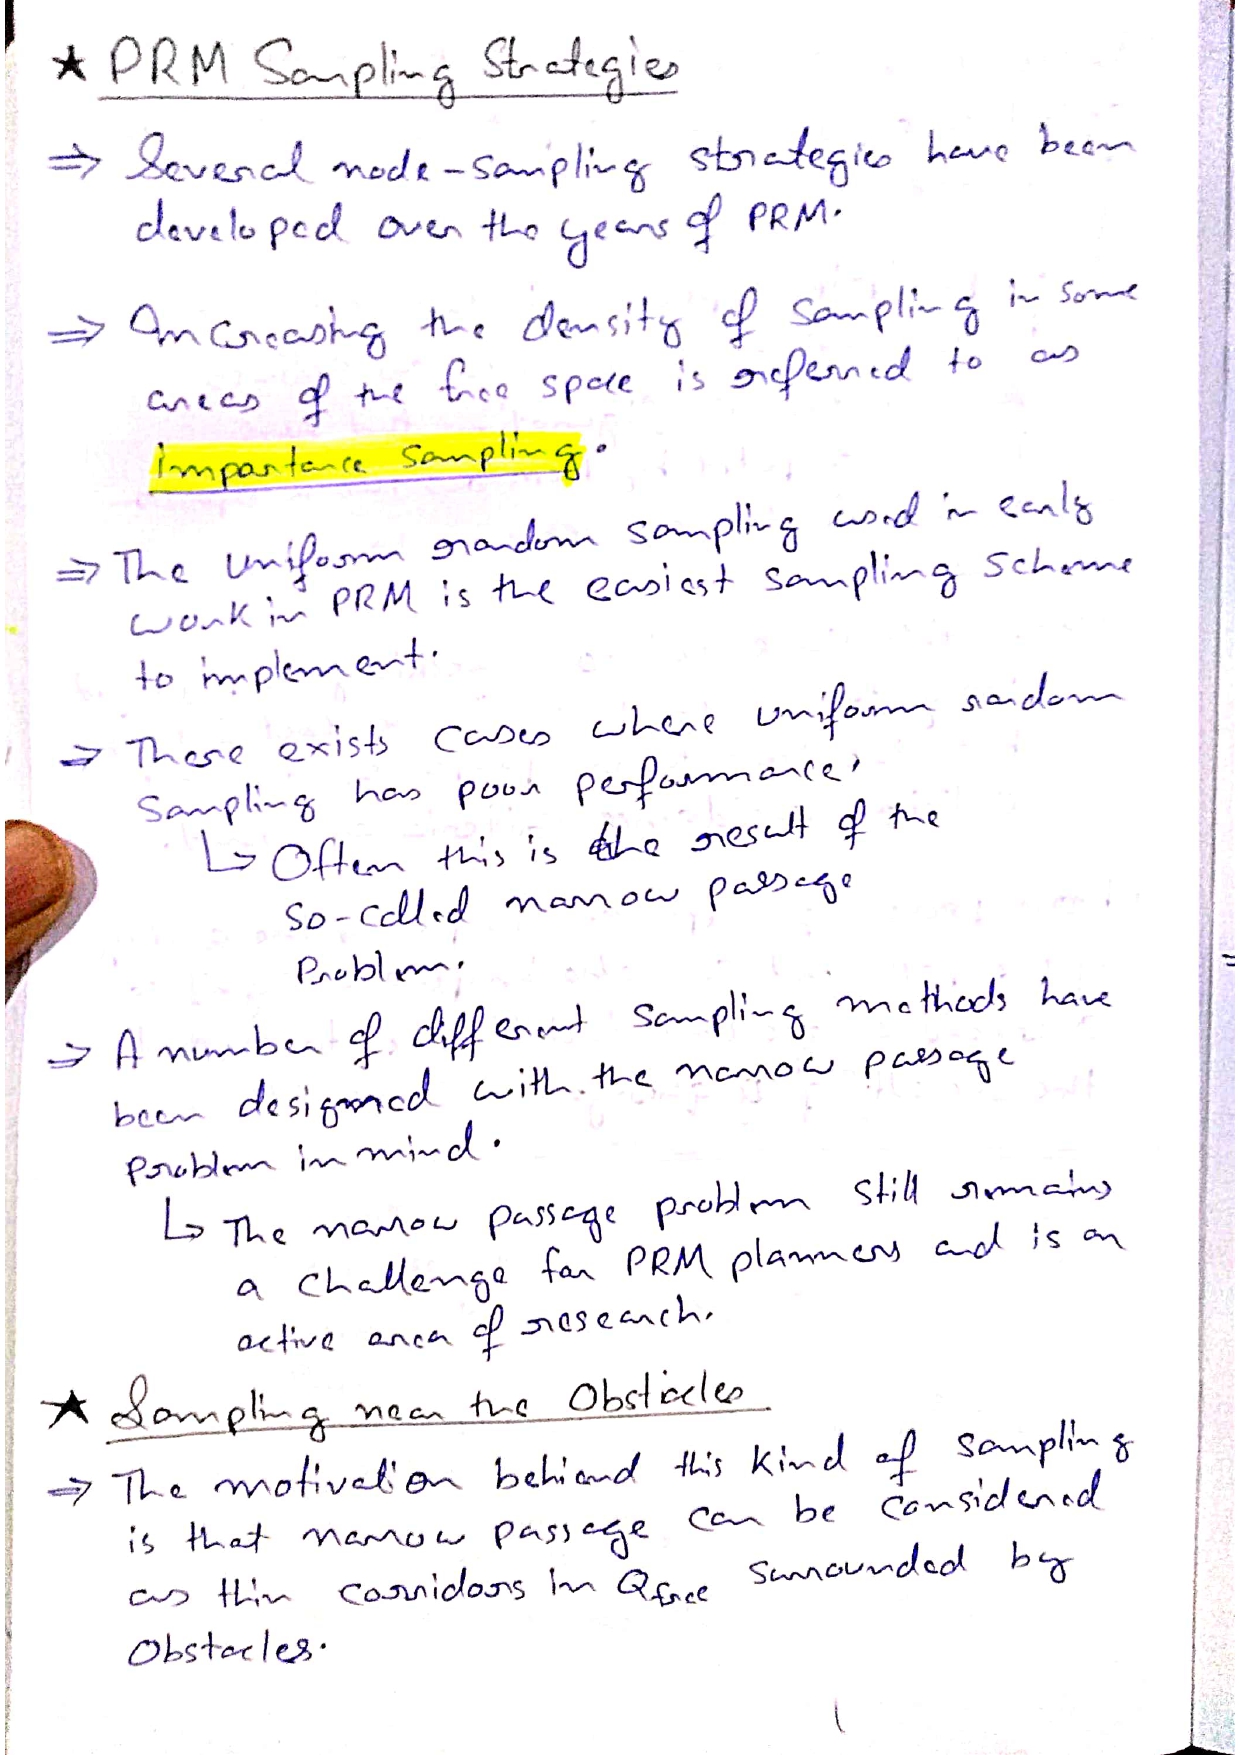 ★ PRM Sampling Strategies
⇒ Several node-sampling strategies have been
developed over the years of PRM.
⇒ Increasing the density of sampling in some
areas of the free space is referred to as
importance sampling.
⇒ The uniform random sampling used in early
work in PRM is the easiest sampling scheme
to implement.
⇒ There exists cases where uniform random
sampling has poor performance,
↳ Often this is the result of the
so-called narrow passage
Problem.
⇒ A number of different sampling methods have
been designed with the narrow passage
problem in mind.
↳ The narrow passage problem still remains
a challenge for PRM planners and is an
active area of research.
★ Sampling near the Obstacles
⇒ The motivation behiend this kind of sampling
is that narrow passage can be considered
as thin corridors in Qfree surrounded by
Obstacles.